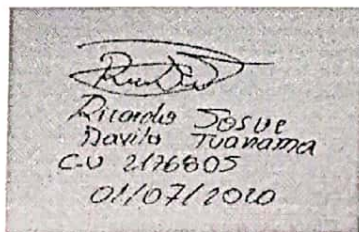 Ricardo Josue
Davila Tuanama
C.U 2176805
01/07/2020